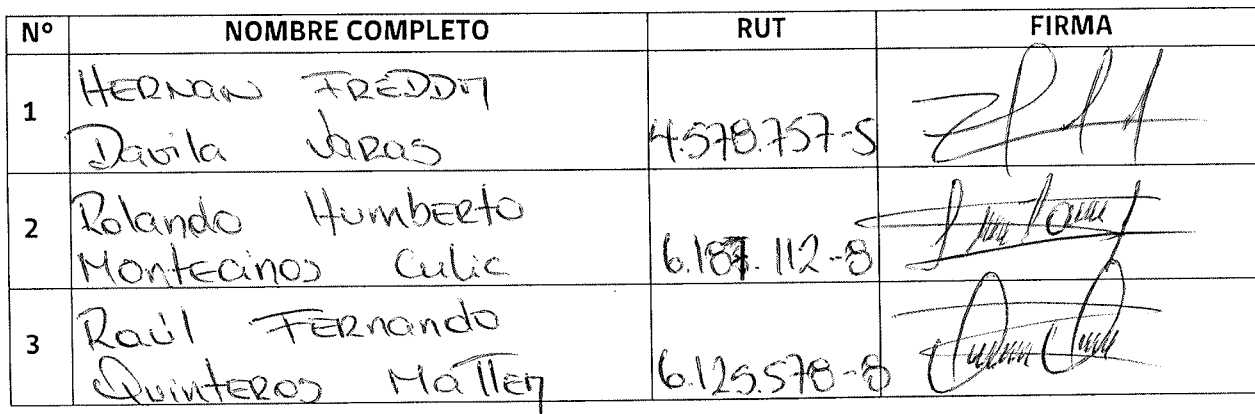 Nº NOMBRE COMPLETO RUT FIRMA
1
HERNAN FREDDY
Davila VARAS 4.578.757-5
2
Rolando HumbERto
MontEcinos Culic 6.187.112-8
3
Raúl FERnando
QuintERos MaTTEy 6.125.578-8